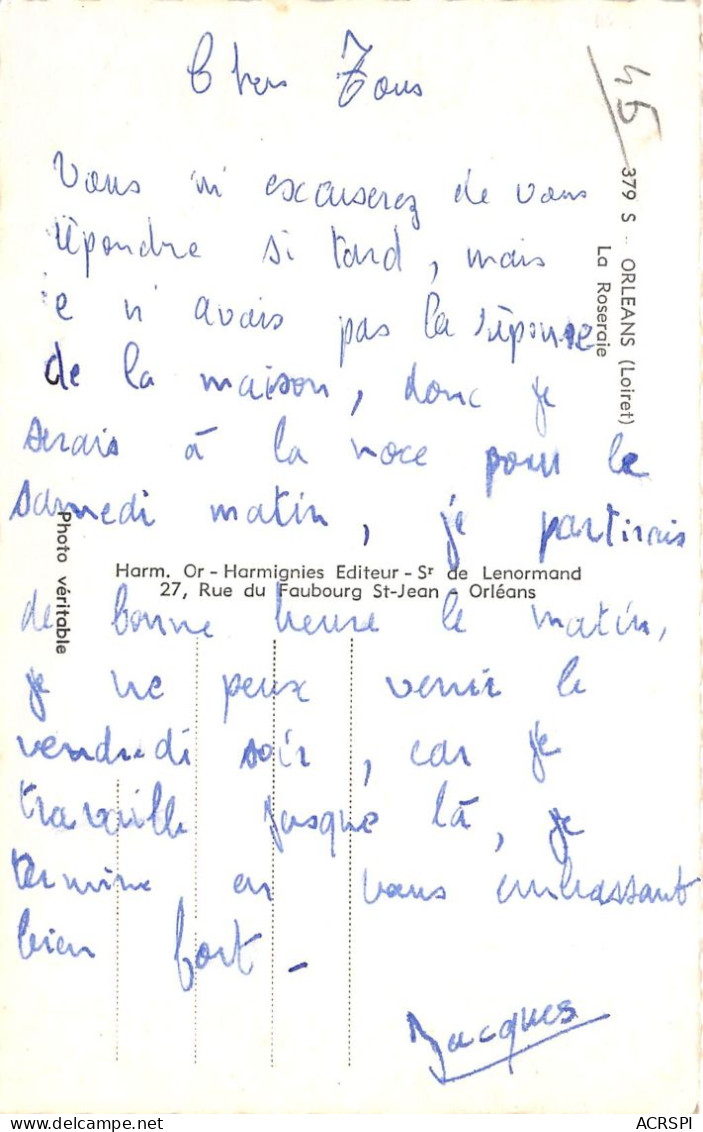 Chers Tous
45
379 S - ORLEANS (Loiret)
La Roseraie
Vous m'excuserez de vous
répondre si tard, mais
je n'avais pas la réponse
de la maison, donc je
serais à la noce pour le
samedi matin, je partirais
Photo véritable
Harm. Or - Harmignies Editeur - Sr de Lenormand
27, Rue du Faubourg St-Jean - Orléans
de bonne heure le matin,
je ne peux venir le
vendredi soir, car je
travaille jusque là, je
termine en vous embrassant
bien fort -
Jacques
delcampe.net
ACRSPI